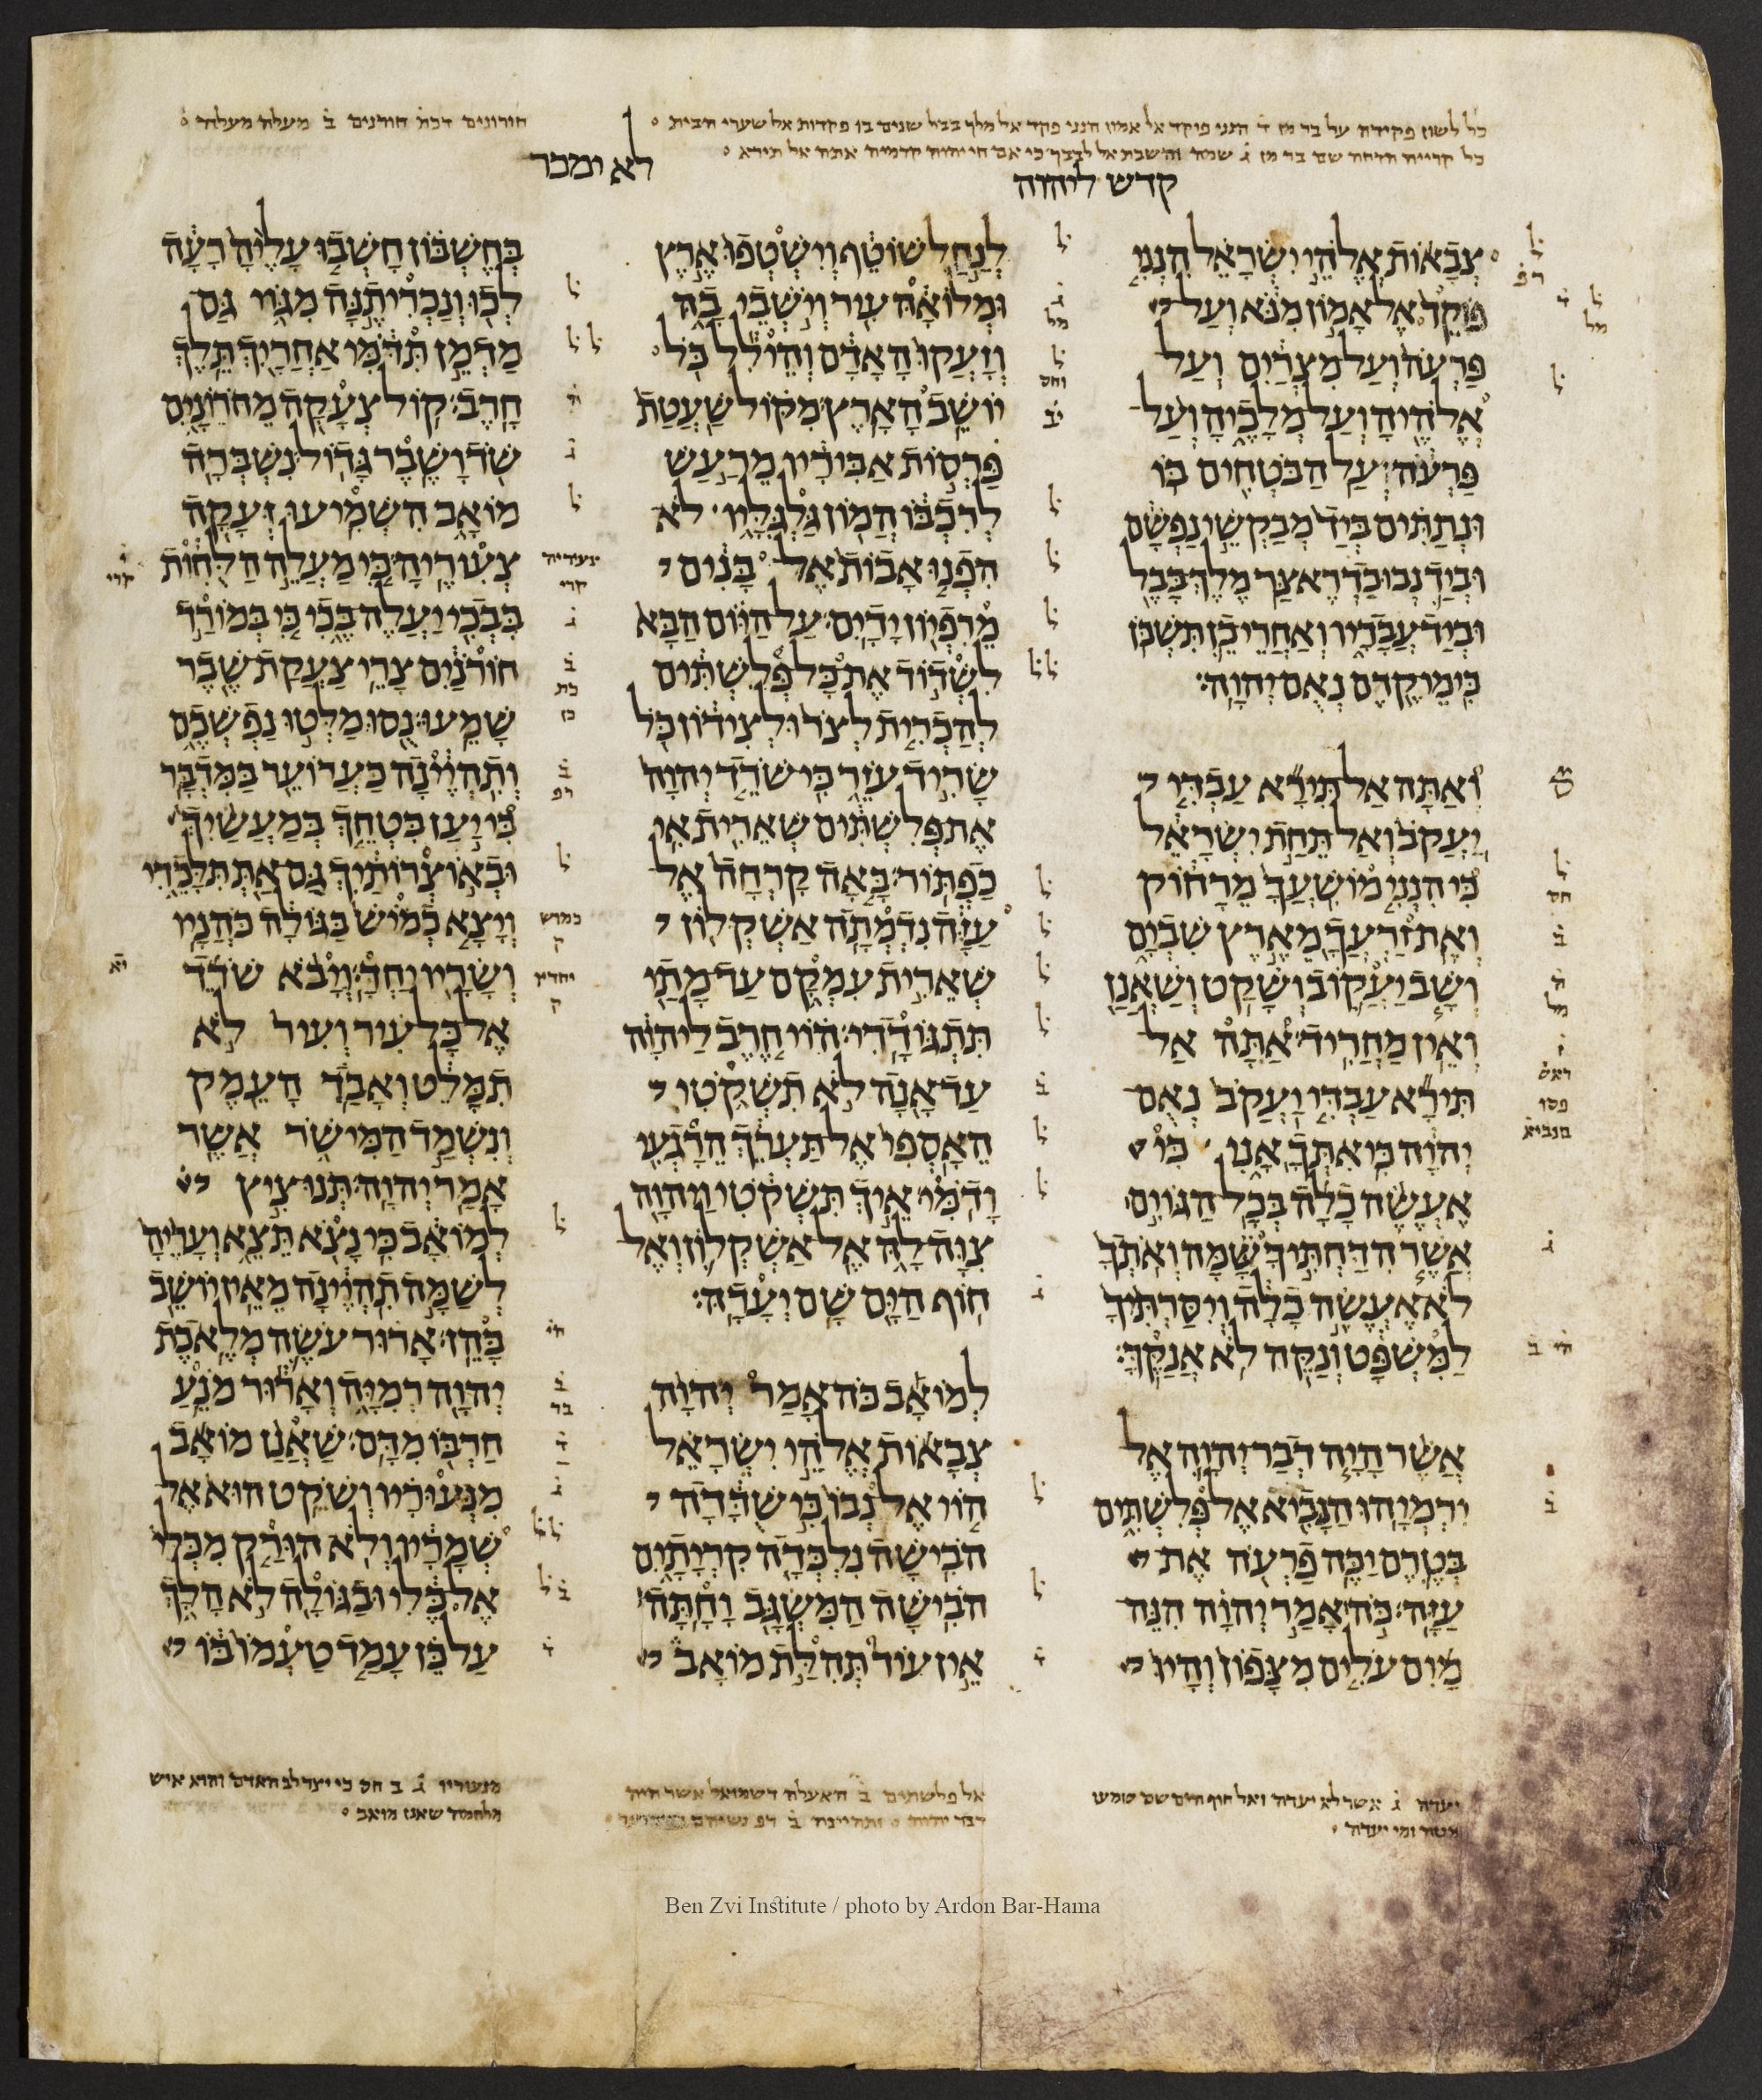 כל לשון פקידה על בר מן ד הנני פוקד אל אמון הנני פקד אל מלך בבל שנים בו פקדות אל שערי הבית
חורונים דכת חורנים ב מעלת מעלה
קדש ליהוה
לא ימכר
צבאות אלהי ישראל הנני
פוקד אל אמון מנא ועל
פרעה ועל מצרים ועל
אלהיה ועל מלכיה ועל
פרעה על הבטחים בו
ונתתים ביד מבקשי נפשם
וביד נבוכדראצר מלך בבל
וביד עבדיו ואחרי כן תשכן
כימי קדם נאם יהוה
ואתה אל תירא עבדי
יעקב ואל תחת ישראל
כי הנני מושעך מרחוק
ואת זרעך מארץ שבים
ושב יעקוב ושקט ושאנן
ואין מחריד אתה אל
תירא עבדי יעקב נאם
יהוה כי אתך אני כי
אעשה כלה בכל הגוים
אשר הדחתיך שמה ואתך
לא אעשה כלה ויסרתיך
למשפט ונקה לא אנקך
אשר היה דבר יהוה אל
ירמיהו הנביא אל פלשתים
בטרם יכה פרעה את
עזה כה אמר יהוה הנה
מים עלים מצפון והיו
לנחל שוטף וישטפו ארץ
ומלואה עיר וישבי בה
וזעקו האדם והילל כל
יושב הארץ מקול שעטת
פרסות אביריו מרעש
לרכבו המון גלגליו לא
הפנו אבות אל בנים
מרפיון ידים על היום הבא
לשדוד את כל פלשתים
להכרית לצר ולצידון כל
שריד עזר כי שדד יהוה
את פלשתים שארית אי
כפתור באה קרחה אל
עזה נדמתה אשקלון
שארית עמקם עד מתי
תתגודדי הוי חרב ליהוה
עד אנה לא תשקטי
האספי אל תערך הרגעי
ודמי איך תשקטי ויהוה
צוה לה אל אשקלון ואל
חוף הים שם יעדה
למואב כה אמר יהוה
צבאות אלהי ישראל
הוי אל נבו כי שדדה
הבישה נלכדה קריתים
הבישה המשגב וחתה
אין עוד תהלת מואב
בחשבון חשבו עליה רעה
לכו ונכריתנה מגוי גם
מדמן תדמי אחריך תלך
חרב קול צעקה מחרונים
שד ושבר גדול נשברה
מואב השמיעו זעקה
צעוריה כי מעלה הלחות
בבכי יעלה בכי כי במורד
חורנים צרי צעקת שבר
שמעו נסו מלטו נפשכם
ותהיינה כערוער במדבר
כי יען בטחך במעשיך
ובאוצרותיך גם את תלכדי
ויצא כמיש בגולה כהניו
ושריו יחד ויבא שדד
אל כל עיר ועיר לא
תמלט ואבד העמק
ונשמד המישר אשר
אמר יהוה תנו ציץ
למואב כי נצא תצא ועריה
לשמה תהיינה מאין יושב
בהן ארור עשה מלאכת
יהוה רמיה וארור מנע
חרבו מדם שאנן מואב
מנעוריו ושקט הוא אל
שמריו ולא הורק מכלי
אל כלי ובגולה לא הלך
על כן עמד טעמו בו
Ben Zvi Institute / photo by Ardon Bar-Hama